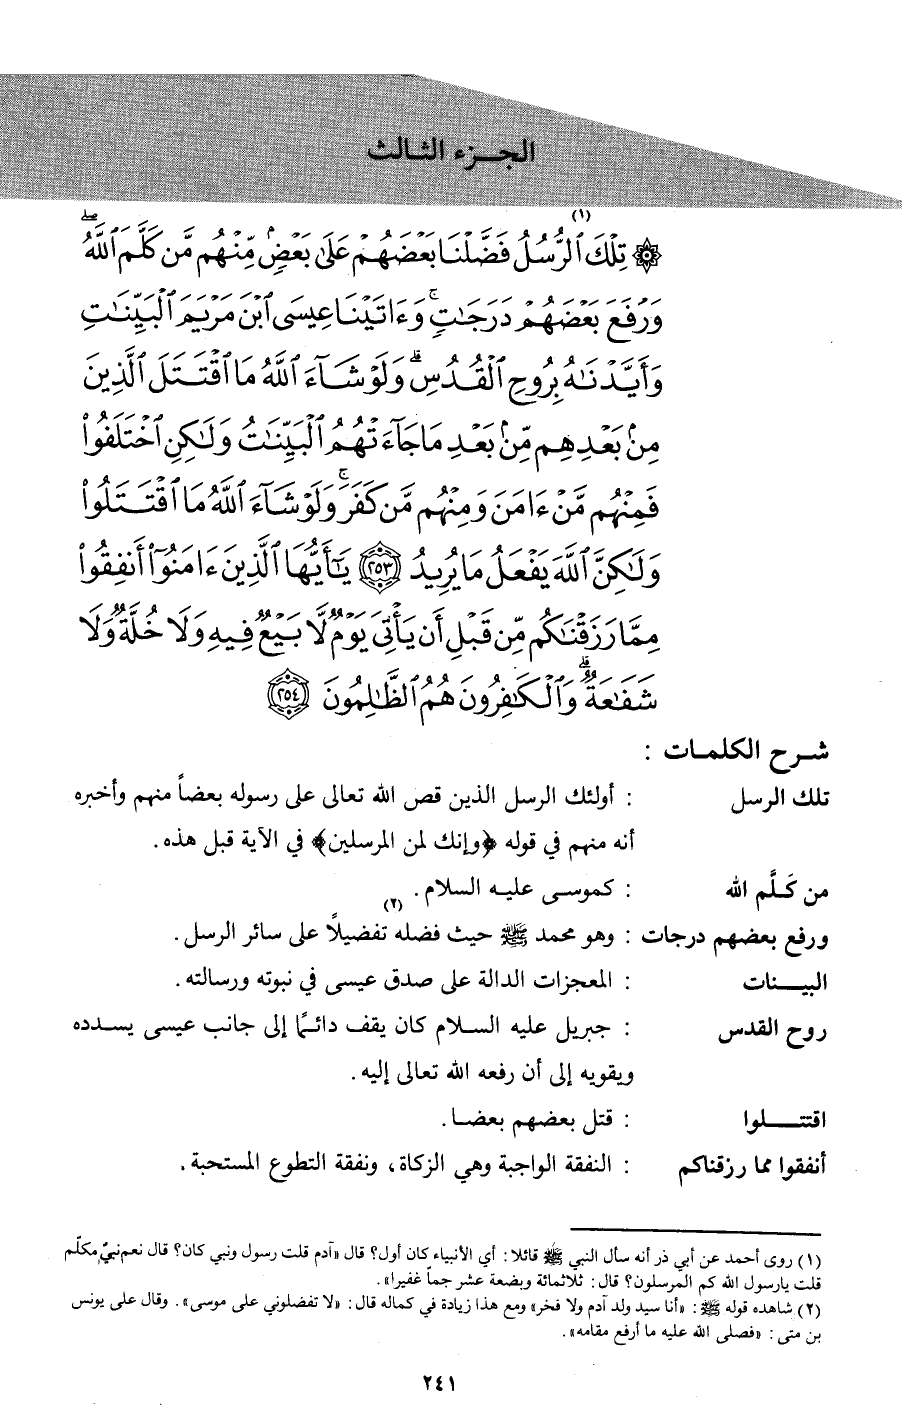 الجـزء الثـالث
(١)
۞ تِلْكَ ٱلرُّسُلُ فَضَّلْنَا بَعْضَهُمْ عَلَىٰ بَعْضٍۢ مِّنْهُم مَّن كَلَّمَ ٱللَّهُ ۖ
وَرَفَعَ بَعْضَهُمْ دَرَجَٰتٍۢ ۚ وَءَاتَيْنَا عِيسَى ٱبْنَ مَرْيَمَ ٱلْبَيِّنَٰتِ
وَأَيَّدْنَٰهُ بِرُوحِ ٱلْقُدُسِ ۗ وَلَوْ شَآءَ ٱللَّهُ مَا ٱقْتَتَلَ ٱلَّذِينَ
مِنۢ بَعْدِهِم مِّنۢ بَعْدِ مَا جَآءَتْهُمُ ٱلْبَيِّنَٰتُ وَلَٰكِنِ ٱخْتَلَفُوا۟
فَمِنْهُم مَّنْ ءَامَنَ وَمِنْهُم مَّن كَفَرَ ۚ وَلَوْ شَآءَ ٱللَّهُ مَا ٱقْتَتَلُوا۟
وَلَٰكِنَّ ٱللَّهَ يَفْعَلُ مَا يُرِيدُ ٢٥٣ يَٰٓأَيُّهَا ٱلَّذِينَ ءَامَنُوٓا۟ أَنفِقُوا۟
مِمَّا رَزَقْنَٰكُم مِّن قَبْلِ أَن يَأْتِىَ يَوْمٌ لَّا بَيْعٌ فِيهِ وَلَا خُلَّةٌ وَلَا
شَفَٰعَةٌ ۗ وَٱلْكَٰفِرُونَ هُمُ ٱلظَّٰلِمُونَ ٢٥٤
شـرح الكلمـات :
تلك الرسل : أولئك الرسل الذين قص الله تعالى على رسوله بعضاً منهم وأخبره
أنه منهم في قوله ﴿وإنك لمن المرسلين﴾ في الآية قبل هذه.
من كَـلَّم الله : كموسـى عليـه السلام.
ورفع بعضهم درجات : وهو محمد ﷺ حيث فضله تفضيلاً (٢) على سائر الرسل.
البيــنات : المعجزات الدالة على صدق عيسى في نبوته ورسالته.
روح القدس : جبريل عليه السـلام كان يقف دائـمًا إلى جانب عيسى يسـدده
ويقويه إلى أن رفعه الله تعالى إليه.
اقتتـــلوا : قتل بعضهم بعضـا.
أنفقوا مما رزقناكم : النفقة الواجبة وهي الزكاة، ونفقة التطوع المستحبة.
(١) روى أحمد عن أبي ذر أنه سأل النبي ﷺ قائلا: أي الأنبياء كان أول؟ قال «آدم قلت رسول ونبي كان؟ قال نعم نبيّ مكلّم
قلت يارسول الله كم المرسلون؟ قال: ثلاثمائة وبضعة عشر جماً غفيرا».
(٢) شاهده قوله ﷺ: «أنا سيد ولد آدم ولا فخر» ومع هذا زيادة في كماله قال: «لا تفضلوني على موسى». وقال على يونس
بن متى: «فصلى الله عليه ما أرفع مقامه».
٢٤١